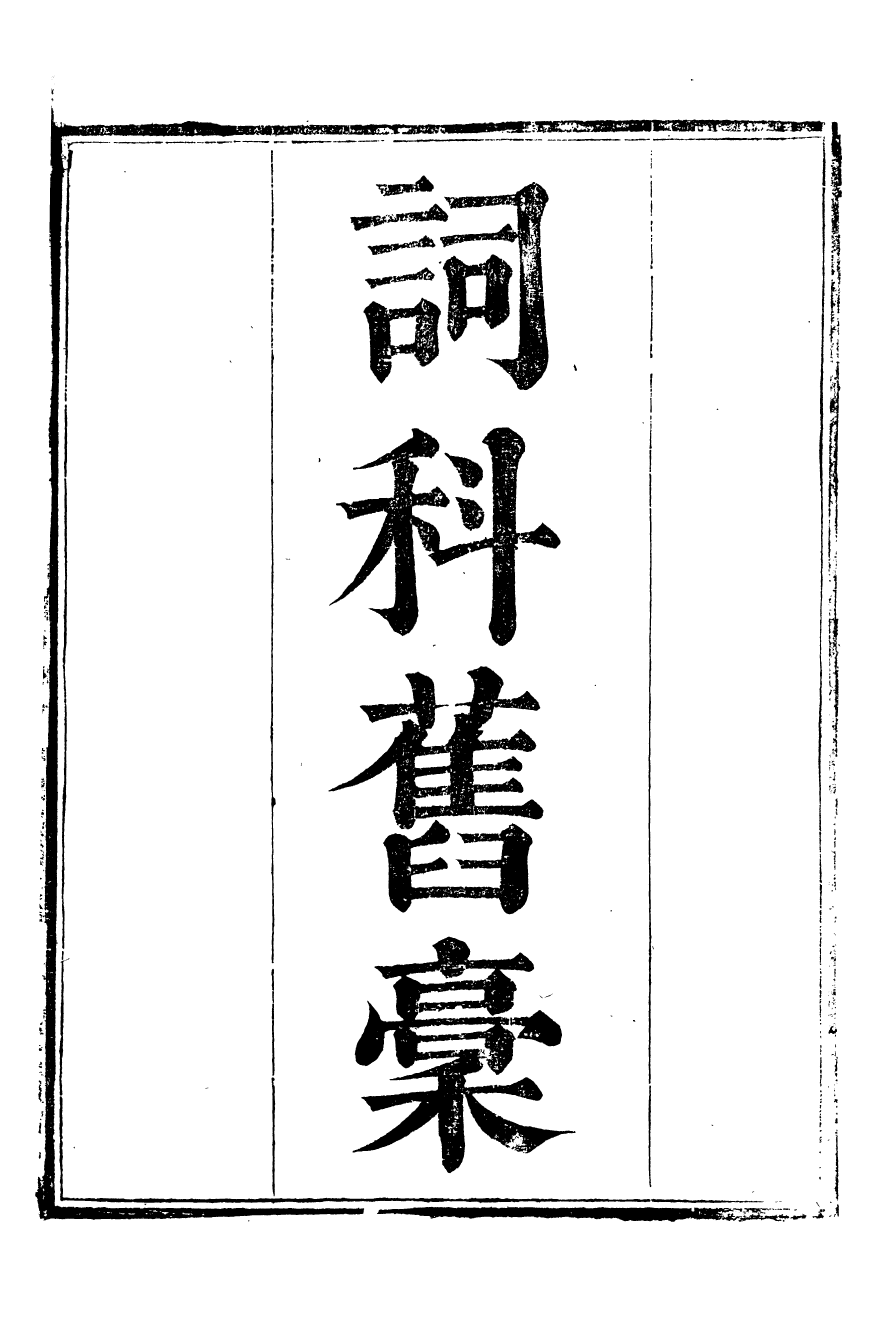 詞科舊稾